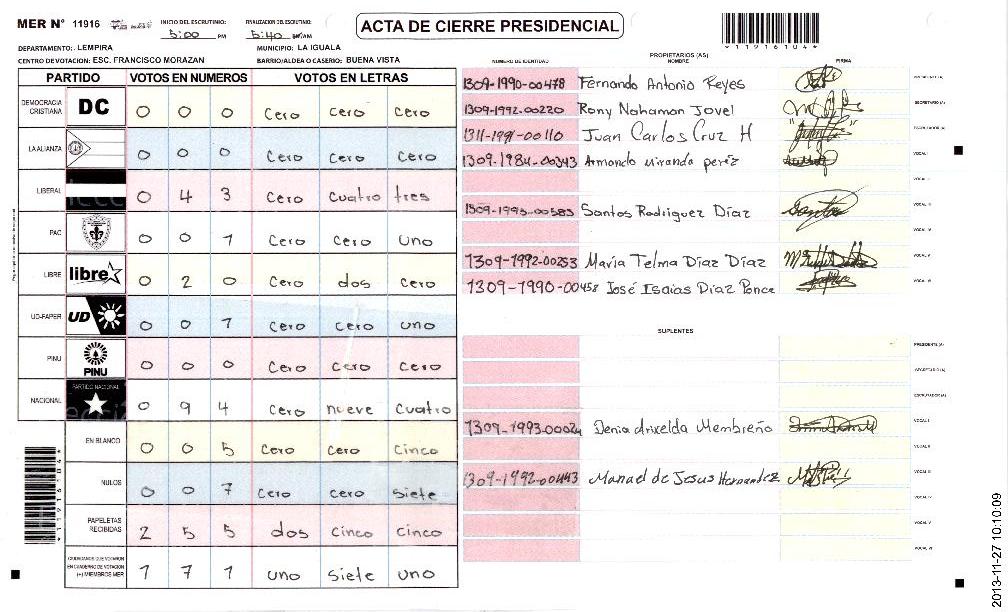 MER N° 11916 INICIO DEL ESCRUTINIO: 5:00 PM FINALIZACION DEL ESCRUTINIO: 5:40
ACTA DE CIERRE PRESIDENCIAL
*11916104*
DEPARTAMENTO: LEMPIRA MUNICIPIO: LA IGUALA
CENTRO DE VOTACION: ESC. FRANCISCO MORAZAN BARRIO/ALDEA O CASERIO: BUENA VISTA
PARTIDO VOTOS EN NUMEROS VOTOS EN LETRAS
DEMOCRACIA CRISTIANA DC 0 0 0 Cero Cero Cero
LA ALIANZA 0 0 0 Cero Cero Cero
LIBERAL 0 4 3 Cero Cuatro tres
PAC 0 0 1 Cero Cero uno
LIBRE libre 0 2 0 Cero dos Cero
UD-FAPER UD 0 0 1 Cero Cero uno
PINU PINU 0 0 0 Cero Cero Cero
NACIONAL PARTIDO NACIONAL 0 9 4 Cero nueve Cuatro
EN BLANCO 0 0 5 Cero Cero Cinco
NULOS 0 0 7 Cero cero siete
PAPELETAS RECIBIDAS 2 5 5 dos Cinco Cinco
CIUDADANOS QUE VOTARON EN CUADERNO DE VOTACION (+) MIEMBROS MER 1 7 1 uno siete uno
*11916104*
PROPIETARIOS (AS)
NUMERO DE IDENTIDAD NOMBRE FIRMA
1309-1990-00478 Fernando Antonio Reyes PRESIDENTE (A)
1309-1992-00220 Rony Nahaman Jovel SECRETARIO (A)
1311-1991-00110 Juan Carlos Cruz H ESCRUTADOR (A)
1309-1984-00343 Armando miranda perez VOCAL I
VOCAL II
1309-1993-00583 Santos Rodriguez Díaz VOCAL III
VOCAL IV
1309-1992-00253 María Telma Díaz Díaz VOCAL V
1309-1990-00458 José Isaías Díaz Ponce VOCAL VI
SUPLENTES
PRESIDENTE (A)
SECRETARIO (A)
ESCRUTADOR (A)
1309-1993-00024 Denia Arixelda Membreño VOCAL I
VOCAL II
1309-1992-00443 Manuel de Jesus Hernandez VOCAL III
VOCAL IV
VOCAL V
VOCAL VI
2013-11-27 10:10:09